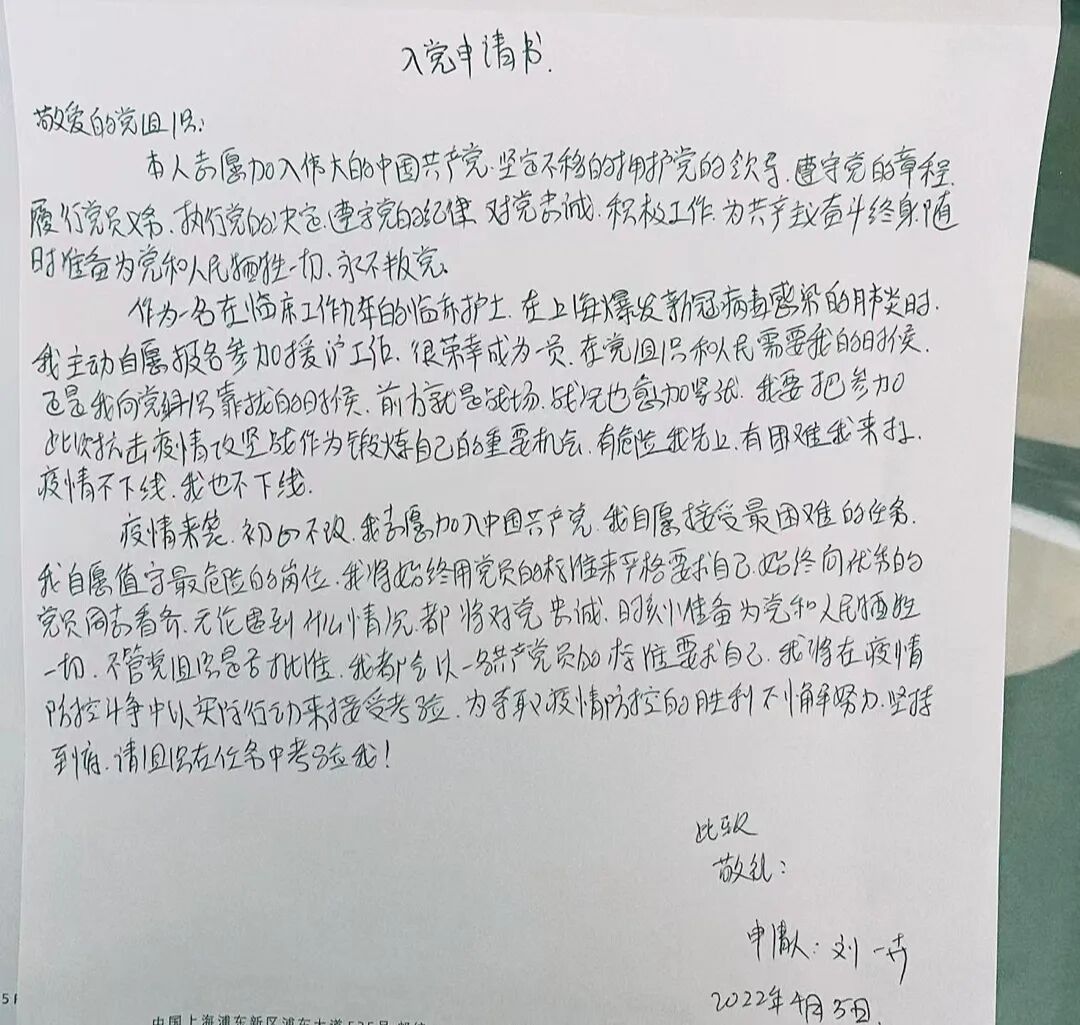 入党申请书.
敬爱的党组织:
本人志愿加入伟大的中国共产党.坚定不移的拥护党的领导.遵守党的章程.
履行党员义务.执行党的决定.遵守党的纪律 对党忠诚.积极工作.为共产主义奋斗终身.随
时准备为党和人民牺牲一切.永不叛党。
作为一名在临床工作九年的临床护士.在上海爆发新冠病毒感染的肺炎时.
我主动自愿报名参加援沪工作.很荣幸成为一员.在党组织和人民需要我的时候.
还是我向党组织靠拢的时候.前方就是战场.战况也愈加紧张.我要把参加
此次抗击疫情攻坚战作为锻炼自己的重要机会.有危险我先上.有困难我来扛.
疫情不下线.我也不下线.
疫情来袭.初心不改.我志愿加入中国共产党.我自愿接受最困难的任务.
我自愿值守最危险的岗位.我将始终用党员的标准来严格要求自己.始终向优秀的
党员同志看齐.无论遇到什么情况.都将对党忠诚.时刻准备为党和人民牺牲
一切.不管党组织是否批准.我都会以一名共产党员的标准要求自己.我将在疫情
防控斗争中以实际行动来接受考验.为夺取疫情防控的胜利不懈努力.坚持
到底.请组织在任务中考验我!
此致
敬礼:
申请人:刘一卉
2022年4月5日.
中国上海浦东新区浦东大道535号